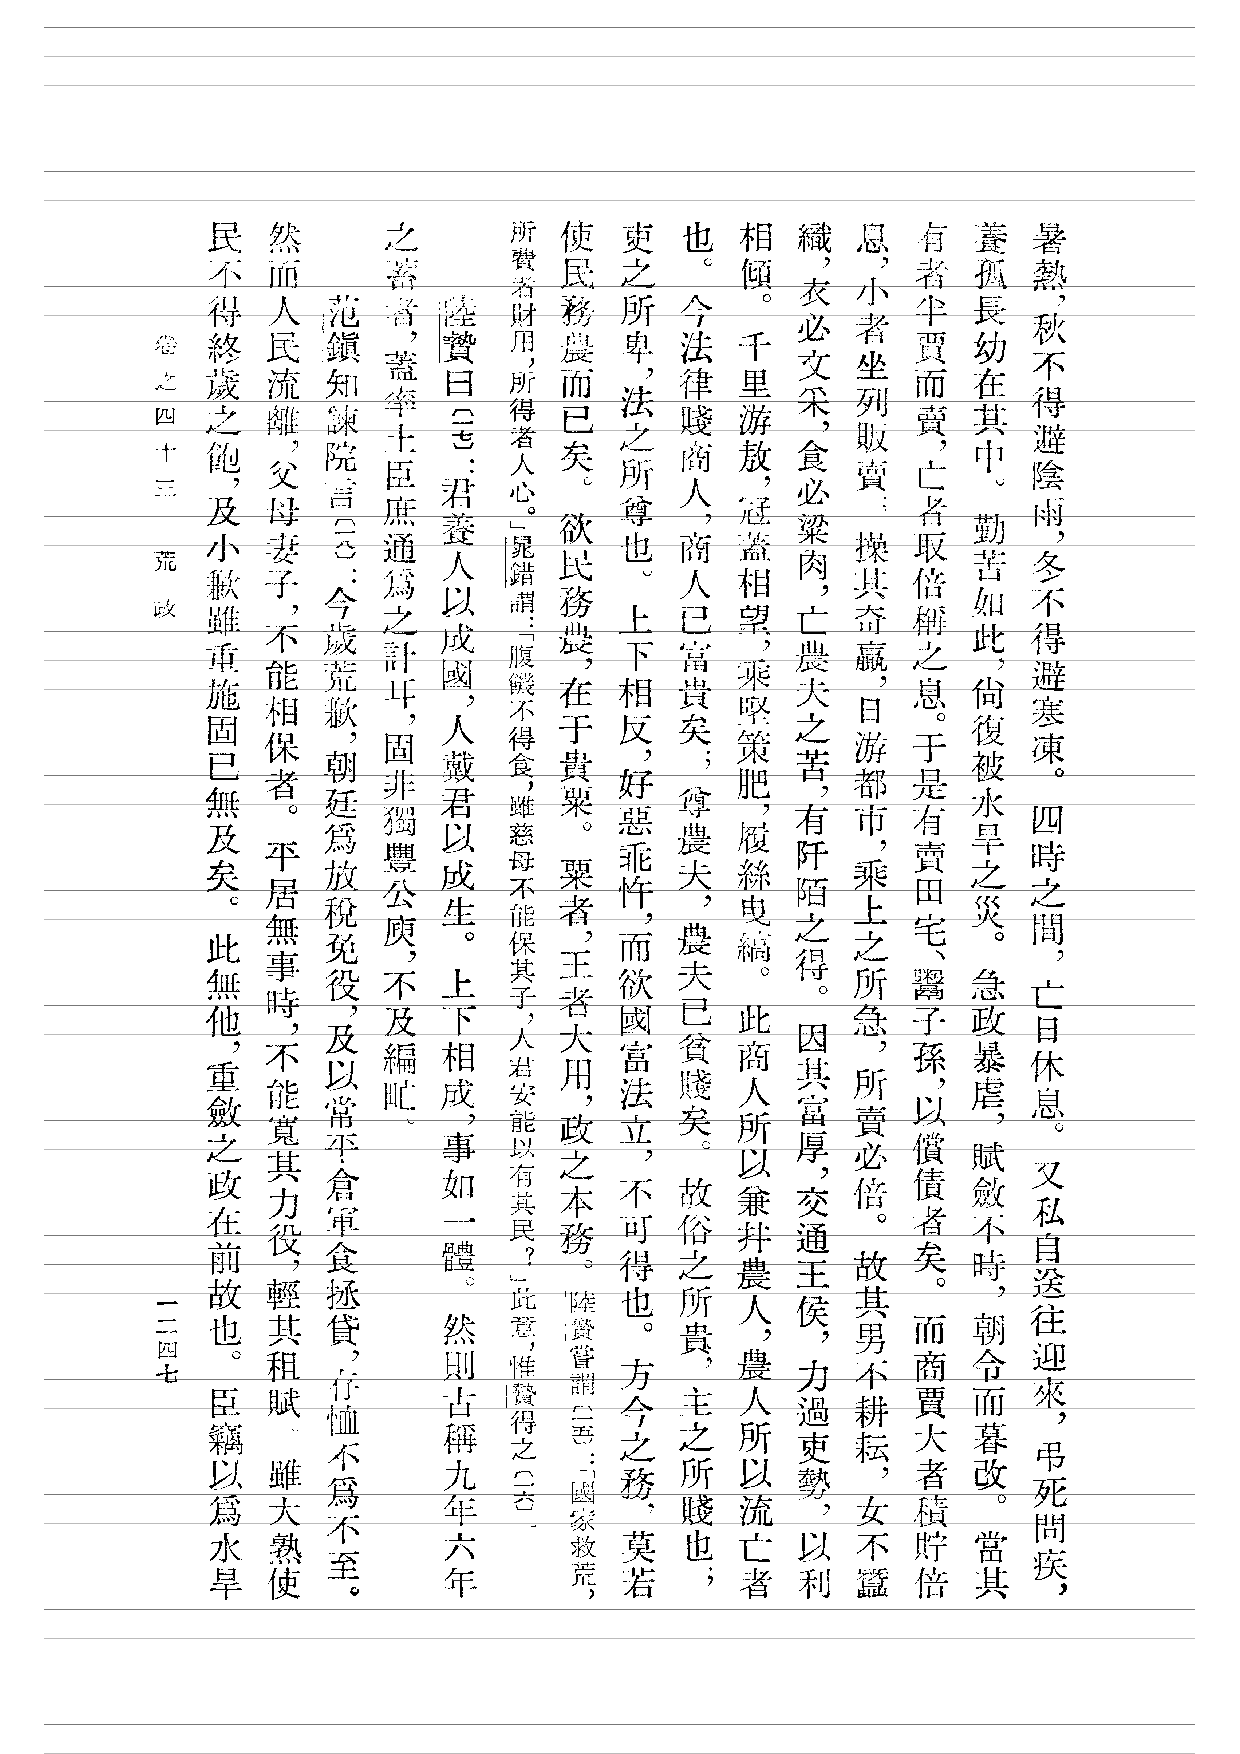 暑熱，秋不得避陰雨，冬不得避寒凍。四時之間，亡日休息。又私自送往迎來，弔死問疾，
養孤長幼在其中。勤苦如此，尙復被水旱之災。急政暴虐，賦斂不時，朝令而暮改。當其
有者半賈而賣，亡者取倍稱之息。于是有賣田宅、鬻子孫，以償債者矣。而商賈大者積貯倍
息，小者坐列販賣；操其奇贏，日游都市，乘上之所急，所賣必倍。故其男不耕耘，女不蠶
織，衣必文采，食必粱肉，亡農夫之苦，有阡陌之得。因其富厚，交通王侯，力過吏勢，以利
相傾。千里游敖，冠蓋相望，乘堅策肥，履絲曳縞。此商人所以兼幷農人，農人所以流亡者
也。今法律賤商人，商人已富貴矣；尊農夫，農夫已貧賤矣。故俗之所貴，主之所賤也；
吏之所卑，法之所尊也。上下相反，好惡乖忤，而欲國富法立，不可得也。方今之務，莫若
使民務農而已矣。欲民務農，在于貴粟。粟者，王者大用，政之本務。陸贄嘗謂〔一五〕：「國家救荒，
所費者財用，所得者人心。」鼂錯謂：「腹饑不得食，雖慈母不能保其子，人君安能以有其民？」此意，惟贄得之〔一六〕。
陸贄曰〔一七〕：君養人以成國，人戴君以成生。上下相成，事如一體。然則古稱九年六年
之蓄者，蓋率土臣庶通爲之計耳，固非獨豐公庾，不及編甿。
范鎭知諫院言〔一八〕：今歲荒歉，朝廷爲放稅免役，及以常平倉軍食拯貸，存恤不爲不至。
然而人民流離，父母妻子，不能相保者。平居無事時，不能寬其力役，輕其租賦。雖大熟使
民不得終歲之飽，及小歉雖重施固已無及矣。此無他，重斂之政在前故也。臣竊以爲水旱
卷之四十三　荒政
一二四七